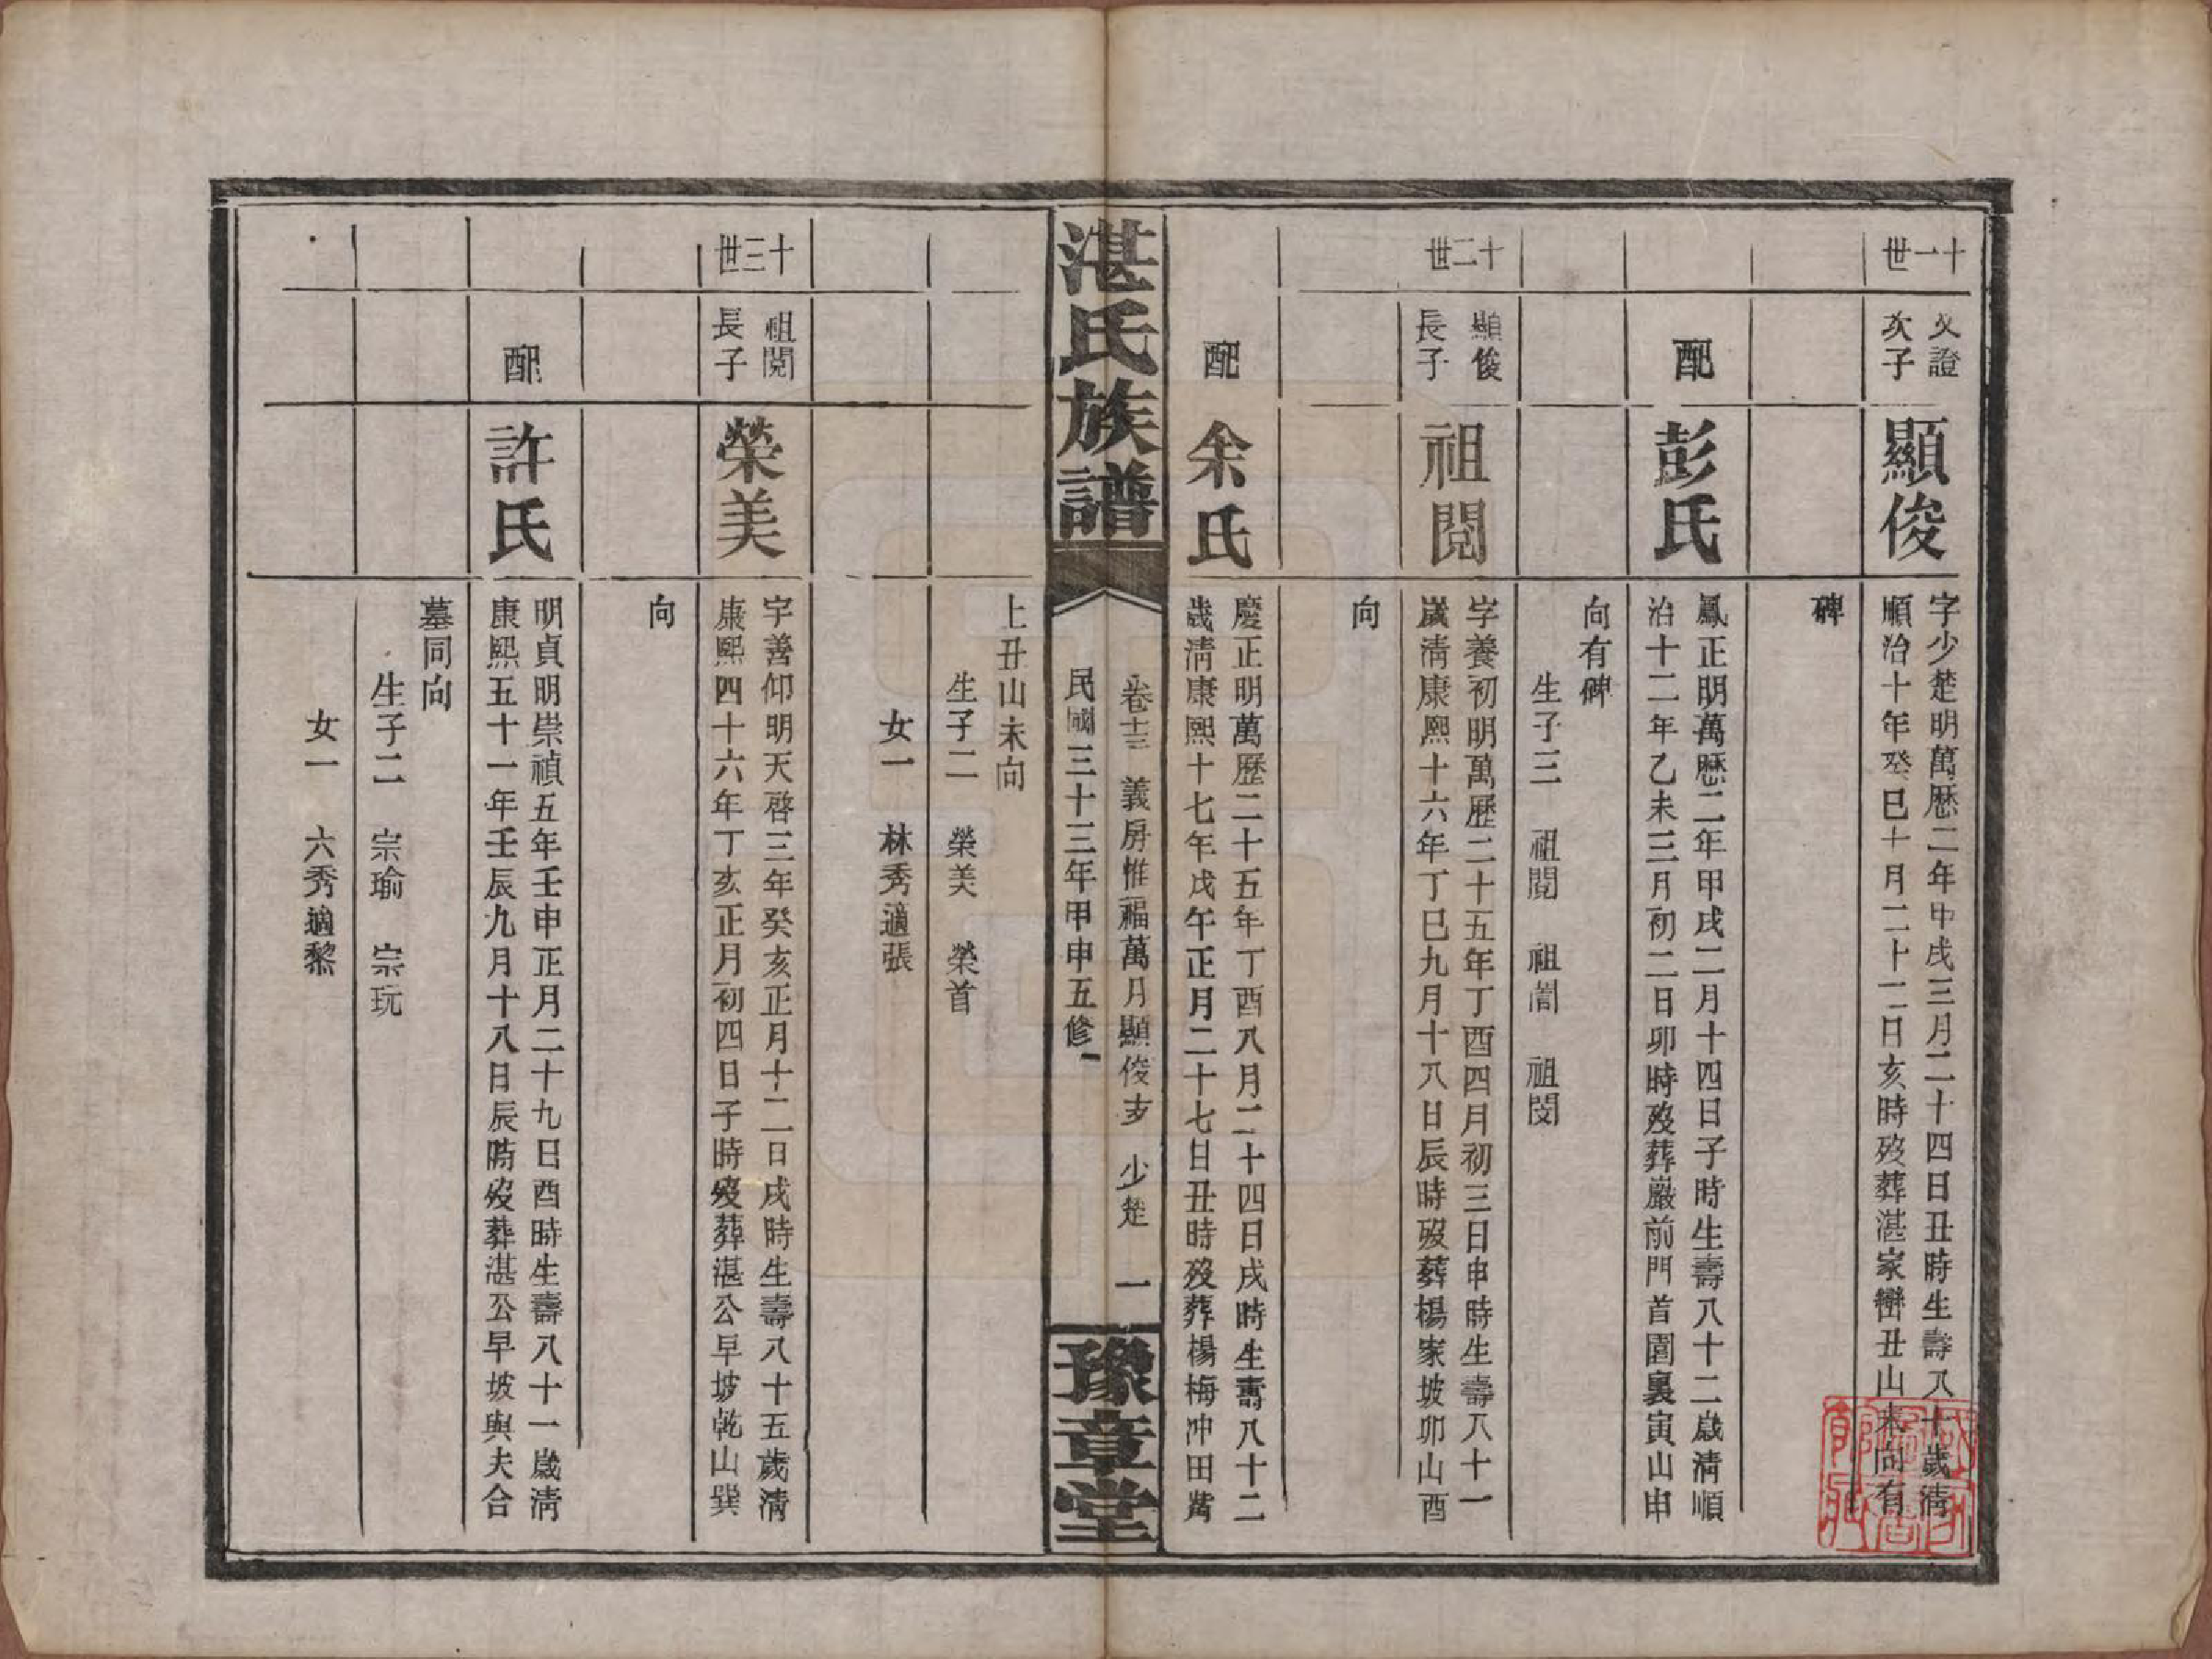 十一世
文證
次子
顯俊
字少楚明萬歷二年甲戌三月二十四日丑時生壽八十歲清
順治十年癸巳十月二十二日亥時歿葬湛家巒丑山未向有
碑
配
彭氏
鳳正明萬歷二年甲戌二月十四日子時生壽八十二歲清順
治十二年乙未三月初二日卯時歿葬巖前門首園裏寅山申
向有碑
生子三 祖閱 祖誾 祖閔
十二世
顯俊
長子
祖閱
字養初明萬歷二十五年丁酉四月初三日申時生壽八十一
歲清康熙十六年丁巳九月十八日辰時歿葬楊家坡卯山酉
向
配
余氏
慶正明萬歷二十五年丁酉八月二十四日戌時生壽八十二
歲清康熙十七年戊午正月二十七日丑時歿葬楊梅冲田塝
湛氏族譜
卷十三 義房惟福萬月顯俊支 少楚 一
民國三十三年甲申五修
豫章堂
上丑山未向
生子二 榮美 榮首
女一 林秀適張
十三世
祖閱
長子
榮美
字善仰明天啓三年癸亥正月十二日戌時生壽八十五歲清
康熙四十六年丁亥正月初四日子時歿葬湛公早坡乾山巽
向
配
許氏
明貞明崇禎五年壬申正月二十九日酉時生壽八十一歲清
康熙五十一年壬辰九月十八日辰時歿葬湛公早坡與夫合
墓同向
生子二 宗瑜 宗玩
女一 六秀適黎